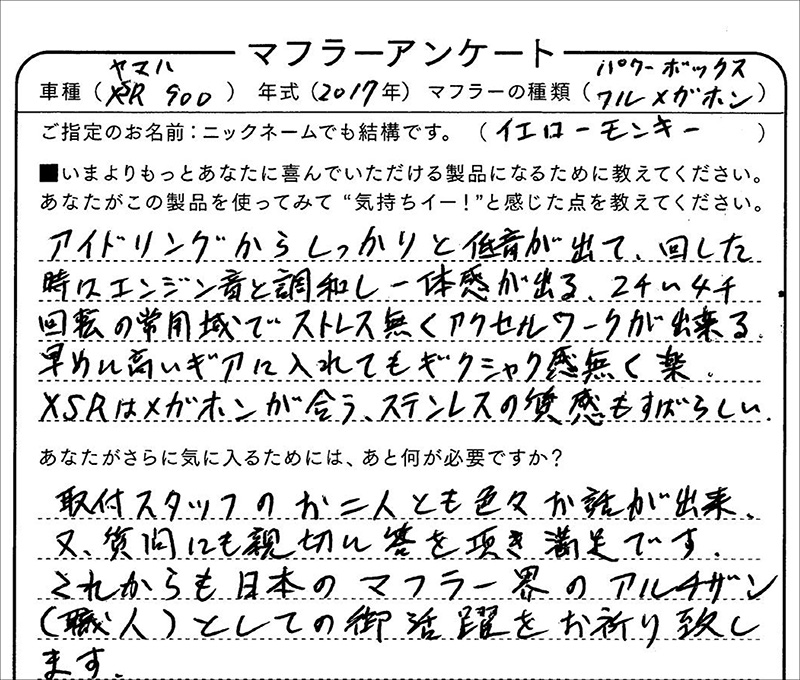 マフラーアンケート
車種（ヤマハ XSR 900）年式（2017年）マフラーの種類（パワーボックス フルメガホン）
ご指定のお名前：ニックネームでも結構です。（イエローモンキー）
■いまよりもっとあなたに喜んでいただける製品になるために教えてください。
あなたがこの製品を使ってみて“気持ちイー！”と感じた点を教えてください。
アイドリングからしっかりと低音が出て、回した
時はエンジン音と調和し一体感が出る、2千い4千
回転の常用域でストレス無くアクセルワークが出来る.
早めに高いギアに入れてもギクシャク感無く楽.
XSRはメガホンが合う、ステンレスの質感もすばらしい.
あなたがさらに気に入るためには、あと何が必要ですか？
取付スタッフのお二人とも色々お話が出来、
又、質問にも親切に答を頂き満足です.
これからも日本のマフラー界のアルチザン
(職人)としての御活躍をお祈り致し
ます.